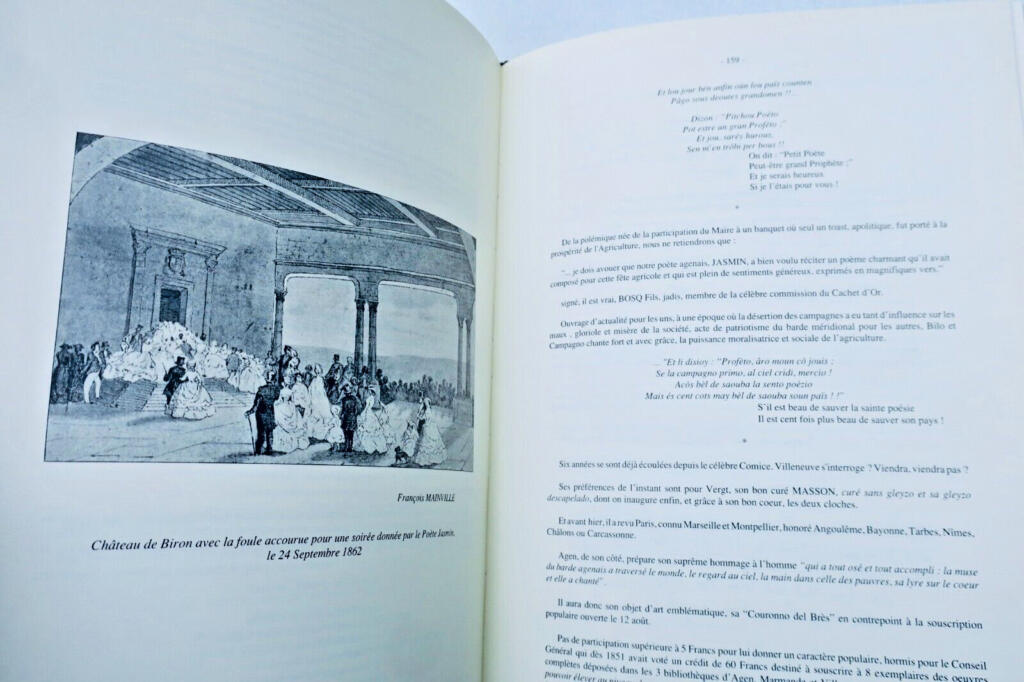 François MAINVILLE
Château de Biron avec la foule accourue pour une soirée donnée par le Poète Jasmin,
le 24 Septembre 1862
- 159 -
Et lou jour bèn anfin oún lou païs counten
Págo sous deoutes grandomen !!...
Dizon : "Pitchou Poèto
Pot estre un gran Profèto ;"
Et jou, sarès hurous,
Sen m'en tròbi per bous !!
On dit : "Petit Poète
Peut-être grand Prophète ;"
Et je serais heureux
Si je l'étais pour vous !
*
De la polémique née de la participation du Maire à un banquet où seul un toast, apolitique, fut porté à la
prospérité de l'Agriculture, nous ne retiendrons que :
"... je dois avouer que notre poète agenais, JASMIN, a bien voulu réciter un poème charmant qu'il avait
composé pour cette fête agricole et qui est plein de sentiments généreux, exprimés en magnifiques vers."
signé, il est vrai, BOSQ Fils, jadis, membre de la célèbre commission du Cachet d'Or.
Ouvrage d'actualité pour les uns, à une époque où la désertion des campagnes a eu tant d'influence sur les
maux , gloriole et misère de la société, acte de patriotisme du barde méridional pour les autres, Bilo et
Campagno chante fort et avec grâce, la puissance moralisatrice et sociale de l'agriculture.
... "Et li disioy : "Profèto, âro moun cò jouis ;
Se la campagno primo, al ciel cridi, mercio !
Acòs bèl de saouba la sento poëzio
Mais és cent cots may bèl de saouba soun païs ! !"
S'il est beau de sauver la sainte poésie
Il est cent fois plus beau de sauver son pays !
*
Six années se sont déjà écoulées depuis le célèbre Comice. Villeneuve s'interroge ? Viendra, viendra pas ?
Ses préférences de l'instant sont pour Vergt, son bon curé MASSON, curé sans gleyzo et sa gleyzo
descapelado, dont on inaugure enfin, et grâce à son bon coeur, les deux cloches.
Et avant hier, il a revu Paris, connu Marseille et Montpellier, honoré Angoulême, Bayonne, Tarbes, Nîmes,
Châlons ou Carcassonne.
Agen, de son côté, prépare son suprême hommage à l'homme "qui a tout osé et tout accompli : la muse
du barde agenais a traversé le monde, le regard au ciel, la main dans celle des pauvres, sa lyre sur le coeur
et elle a chanté".
Il aura donc son objet d'art emblématique, sa "Couronno del Brès" en contrepoint à la souscription
populaire ouverte le 12 août.
Pas de participation supérieure à 5 Francs pour lui donner un caractère populaire, hormis pour le Conseil
Général qui dès 1851 avait voté un crédit de 60 Francs destiné à souscrire à 8 exemplaires des oeuvres
complètes déposées dans les 3 bibliothèques d'Agen, Marmande et
pouvoir élever au